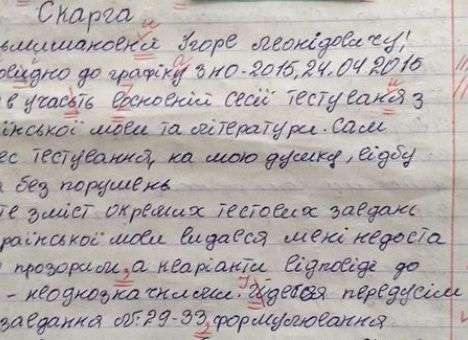 Скарга
ьмишановний Ігоре Леонідовичу!
овідно до графіку ЗНО-2015, 24.04.2015
в участь восновній сесії тестування з
їнської мови та літератури. Сам
ес тестування, на мою думку, відбу
без порушень
те зміст окремих тестових завдань
країнської мови видався мені недоста
прозорим, а неаріанти відповіде до
- неоднозначними. Ідеться передусім
завдання №29-33, формулювання